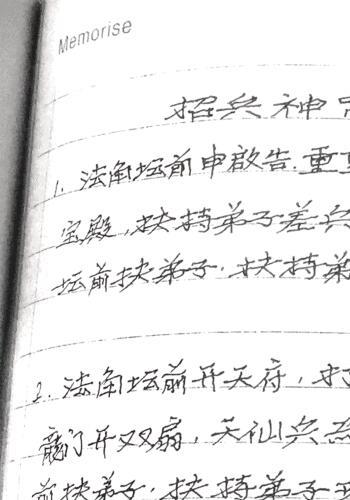 Memorise
招兵神
1. 法角坛前申启告.重
宝殿,扶持弟子差兵
坛前扶弟子.扶持弟
2. 法角坛前开天府,
龍门开双扇,天仙兵
前扶弟子.扶持弟子